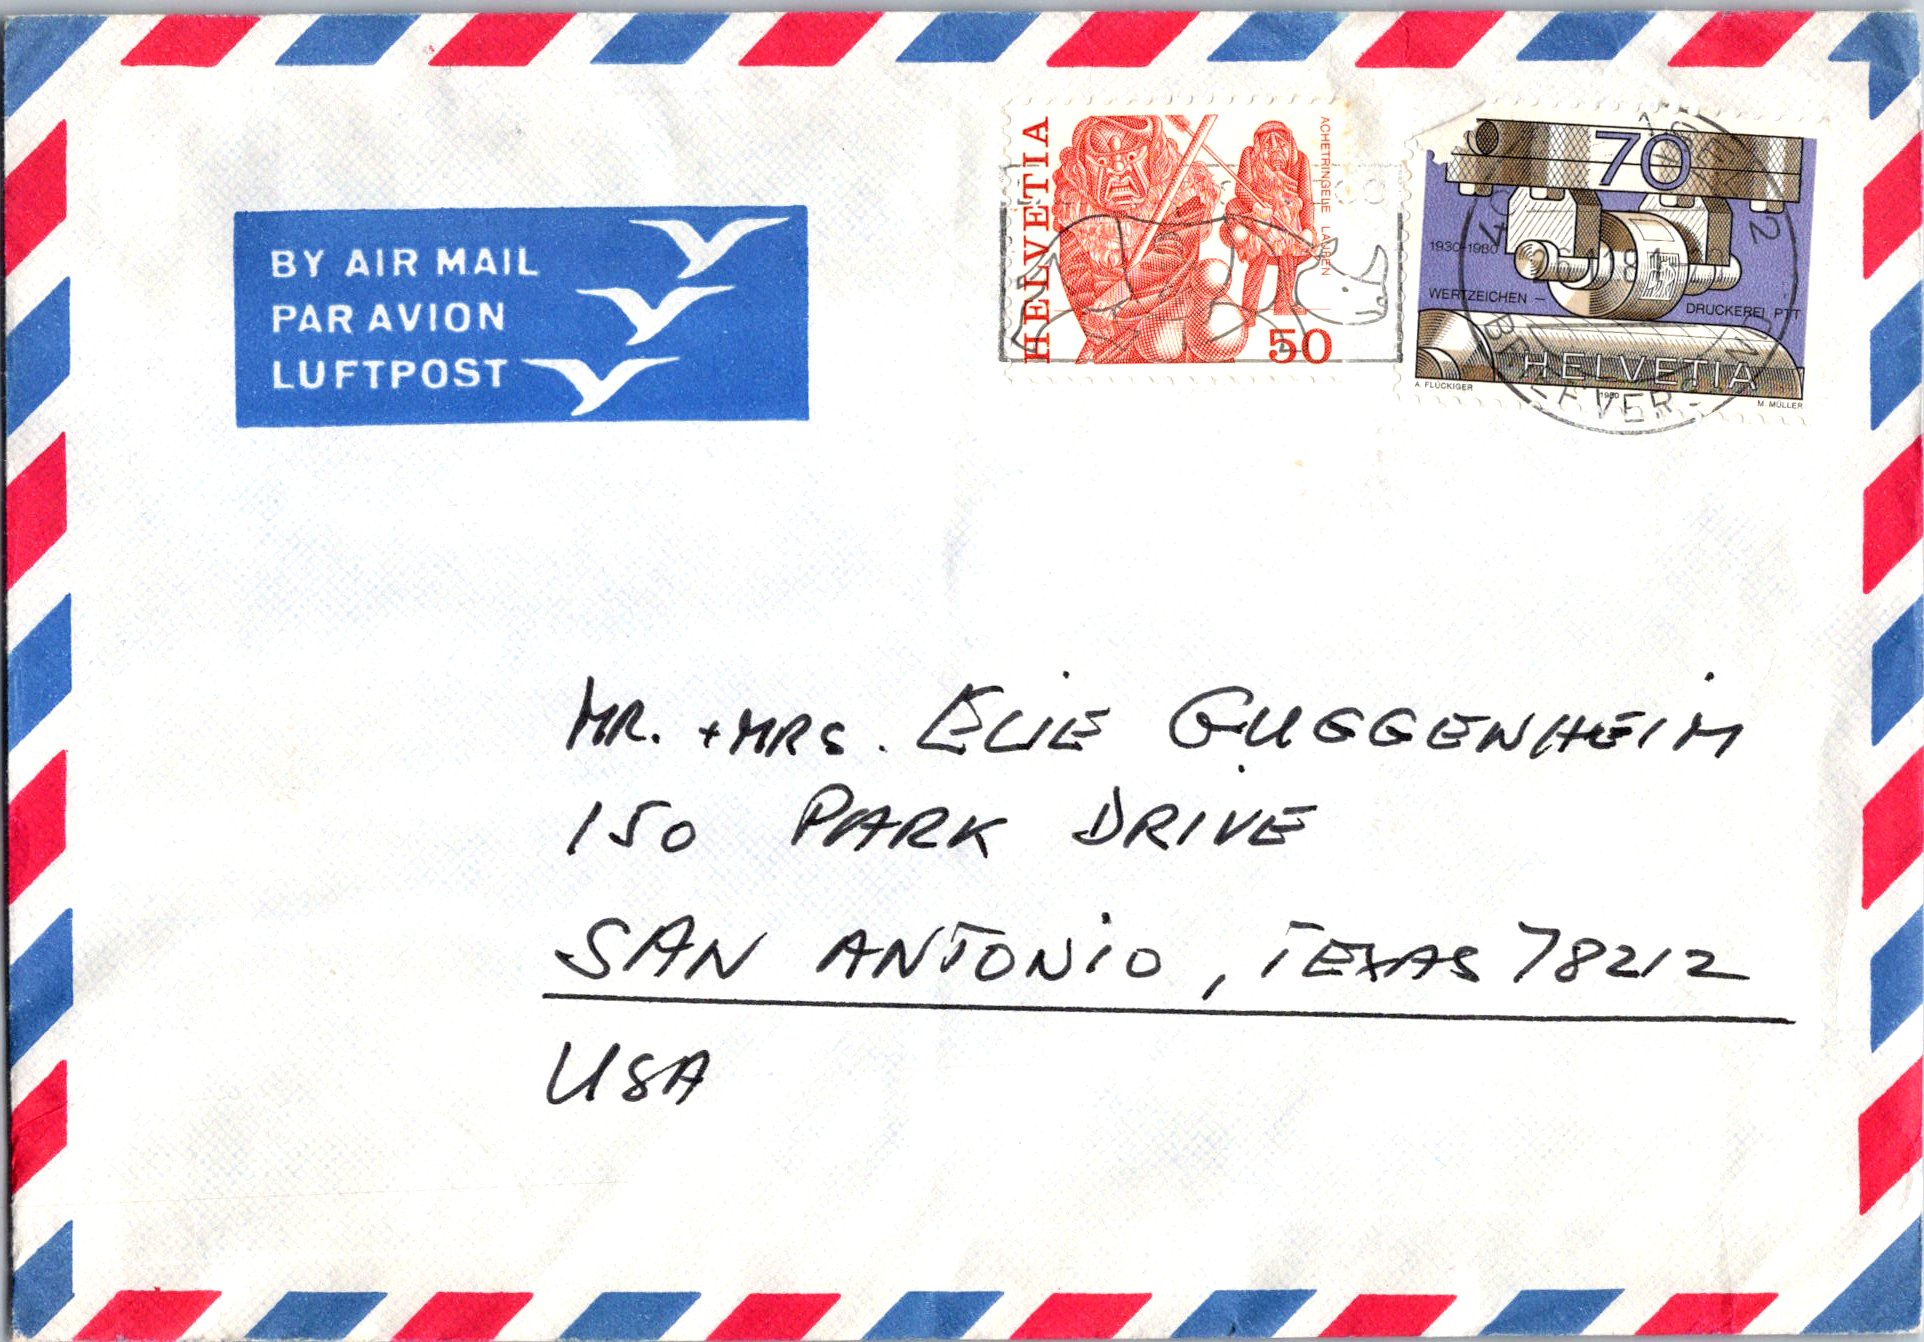 BY AIR MAIL
PAR AVION
LUFTPOST
HELVETIA
ACHETRINGELE LAUPEN
50
70
1930-1980
WERTZEICHEN –
DRUCKEREI PTT
HELVETIA
A. FLÜCKIGER
1980
M. MÜLLER
MR. + MRS. ELIE GUGGENHEIM
150 PARK DRIVE
SAN ANTONIO, TEXAS 78212
USA